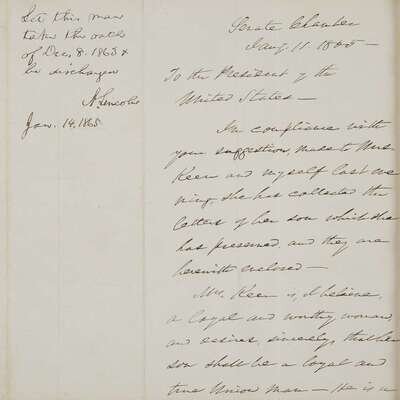 Let this man
take the oath
of Dec. 8. 1863 &
be discharged
A. Lincoln
Jan. 14, 1865
Senate Chamber
Jany. 11. 1865 —
To the President of the
United States —
In compliance with
your suggestion, made to Mrs.
Keen and myself last eve
ning, she has collected the
letters of her son which she
has preserved, and they are
herewith enclosed —
Mrs. Keen is, I believe,
a loyal and worthy woman,
and desires, sincerely, that her
son shall be a loyal and
true Union man — He is a